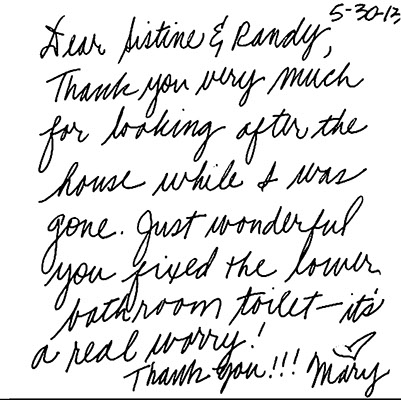 5-30-13
Dear Sistine & Randy,
Thank you very much
for looking after the
house while I was
gone. Just wonderful
you fixed the lower
bathroom toilet—it's
a real worry!
Thank you!!! Mary